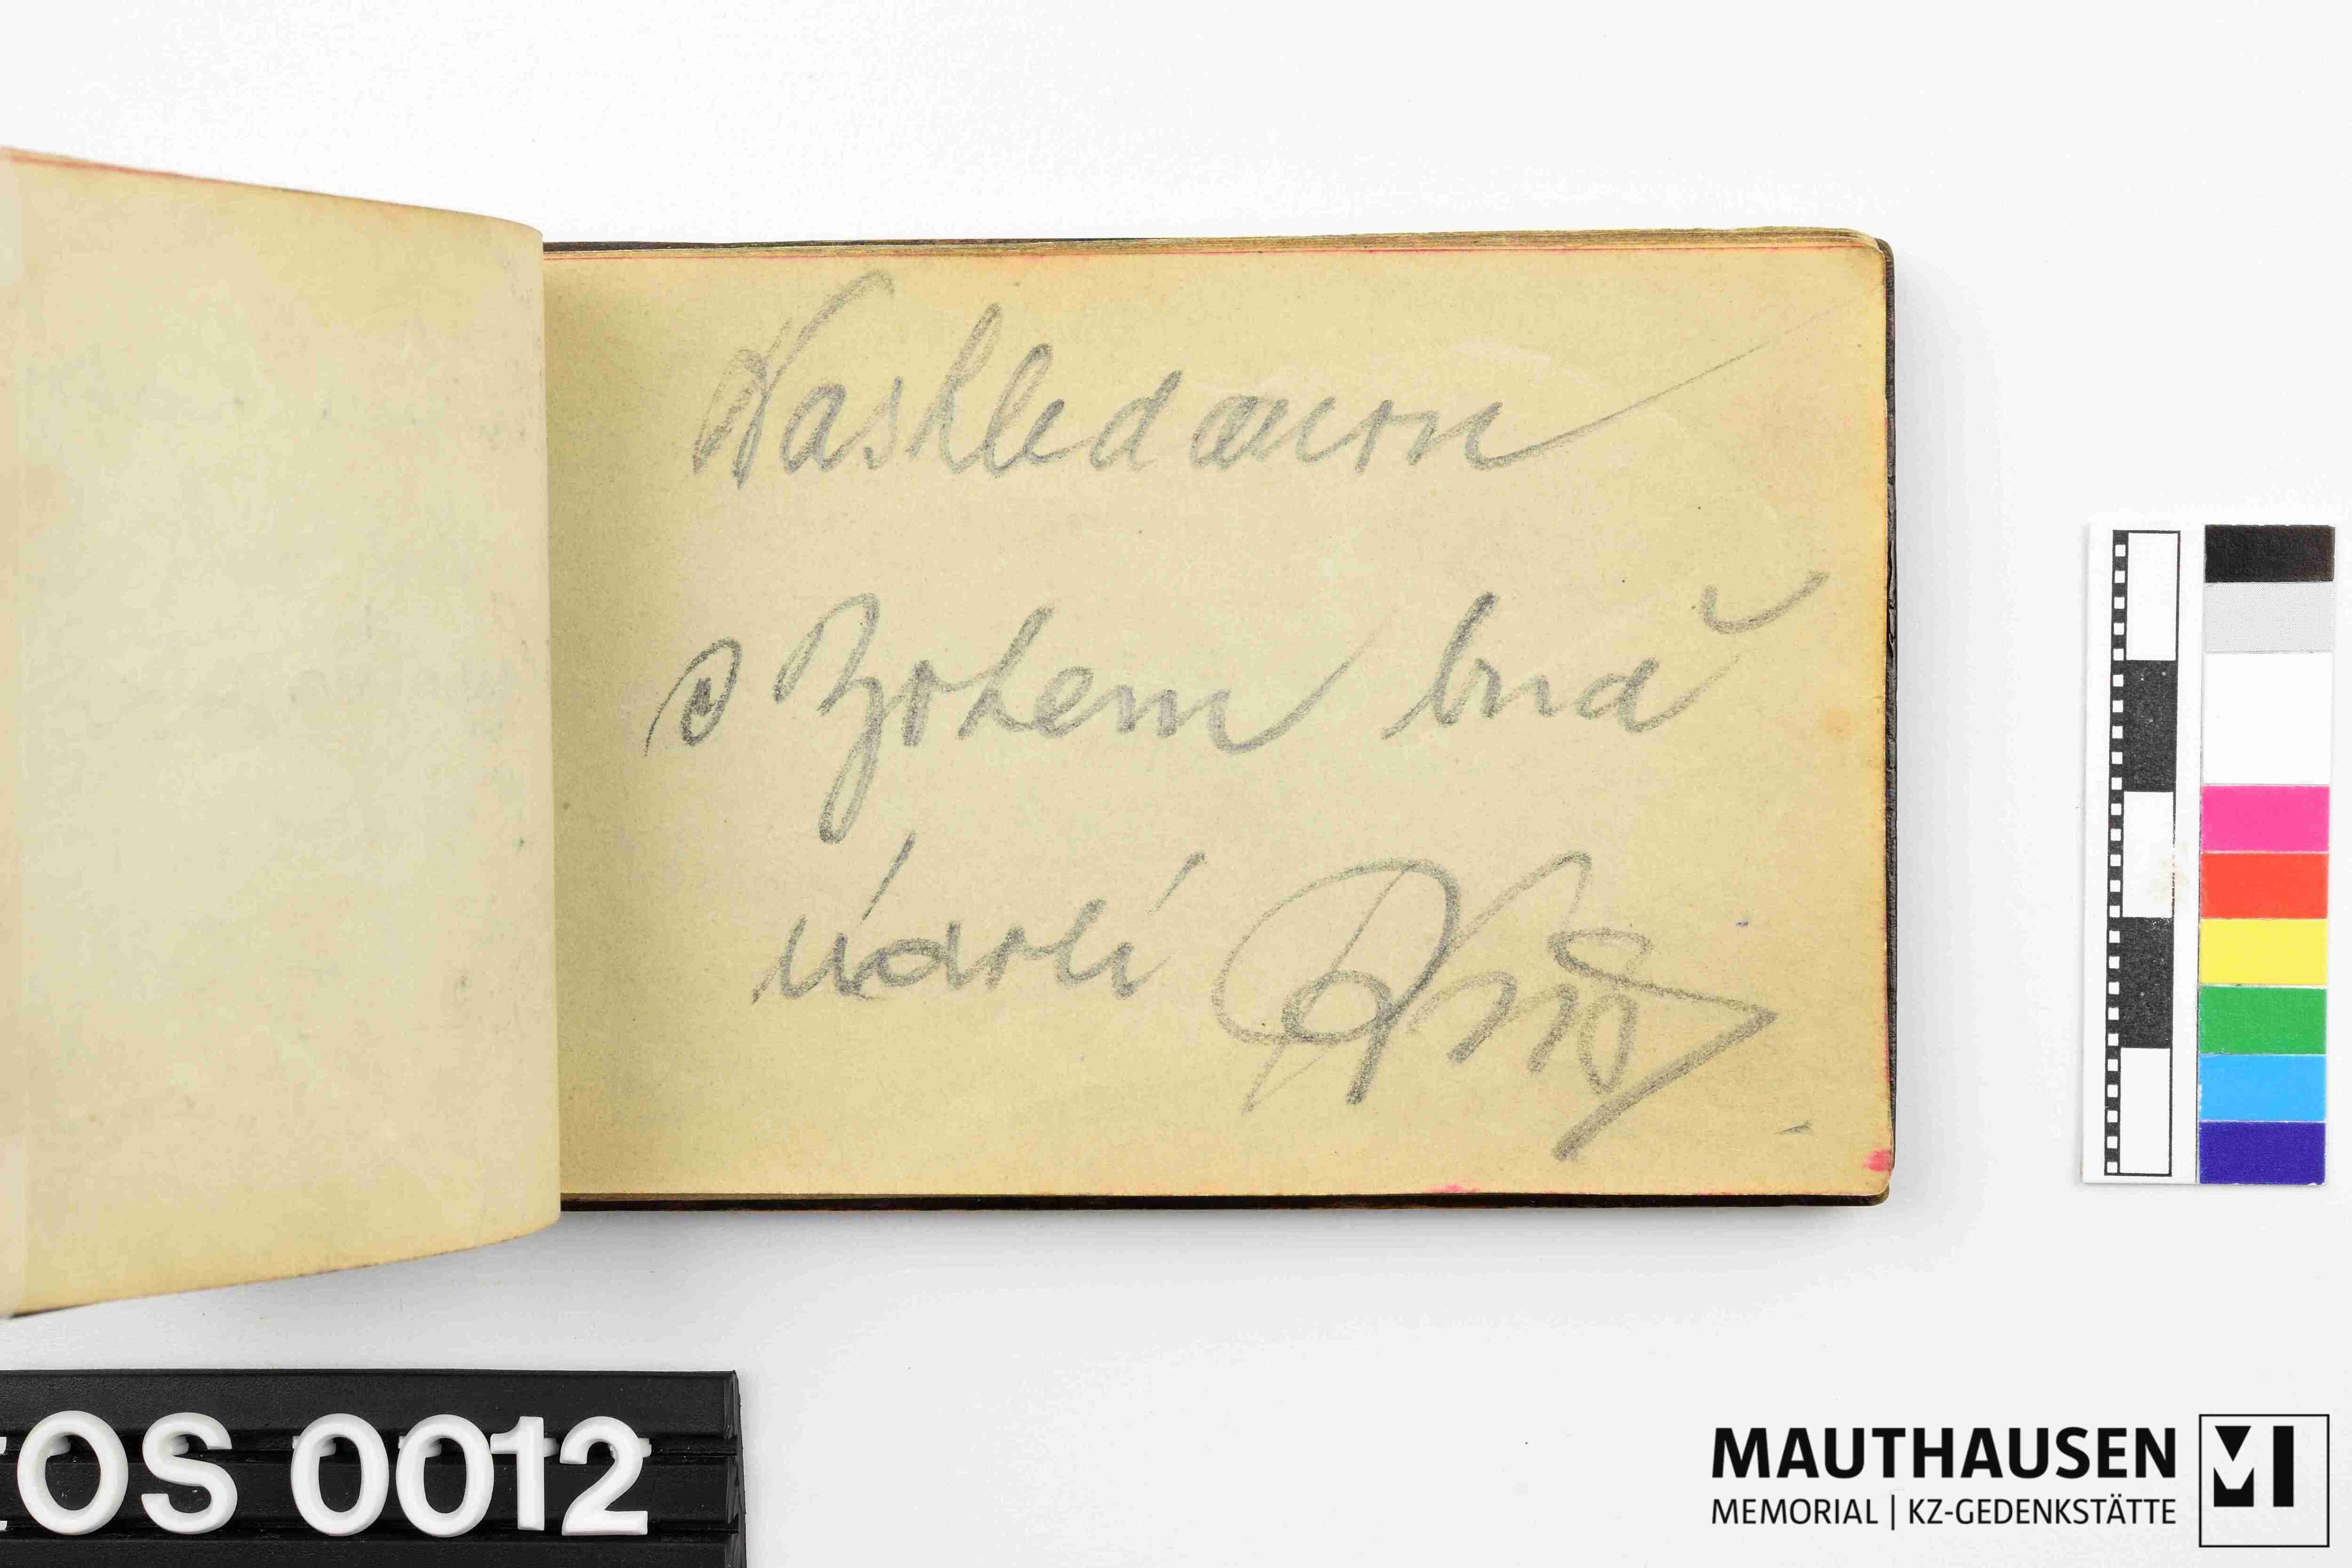 Naskledanou
s Bohem buď
OS 0012
MAUTHAUSEN
MEMORIAL | KZ-GEDENKSTÄTTE